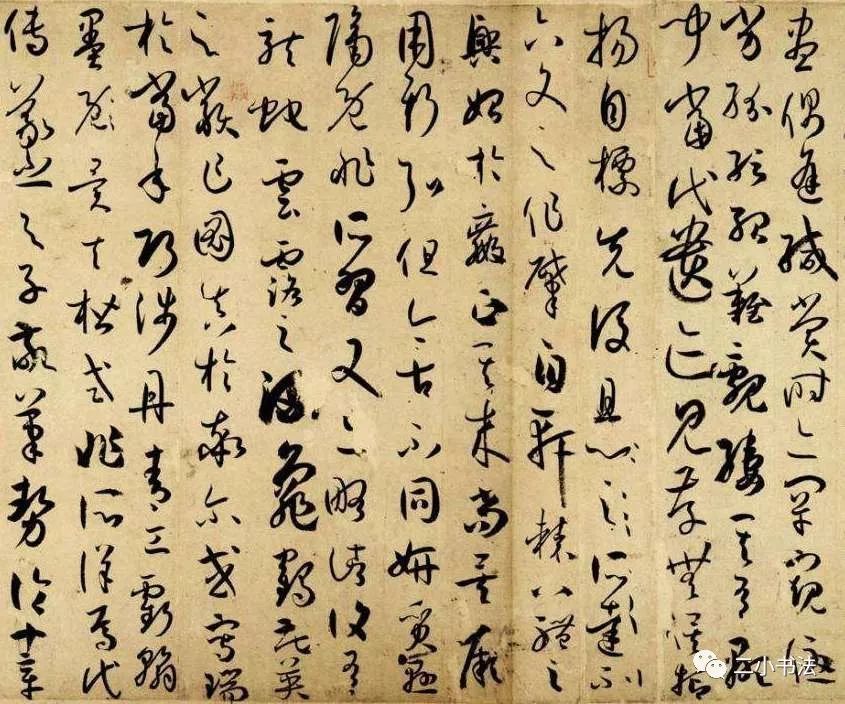 盡偶逢緘賞時亦罕窺優
劣紛紜殆難覼縷其有顯
聞當代遺迹見存無俟抑
揚自標先後且心之所達不
六文之作肇自軒轅八體之
興始於嬴正其來尚矣厥
用斯弘但今古不同妍質懸
隔既非所習又亦略諸復有
龍蛇雲露之流龜鶴花英
之類乍圖真於率爾或寫瑞
於當年巧涉丹青工虧翰
墨異夫楷式非所詳焉代
傳羲之與子敬筆勢論十章
二小书法